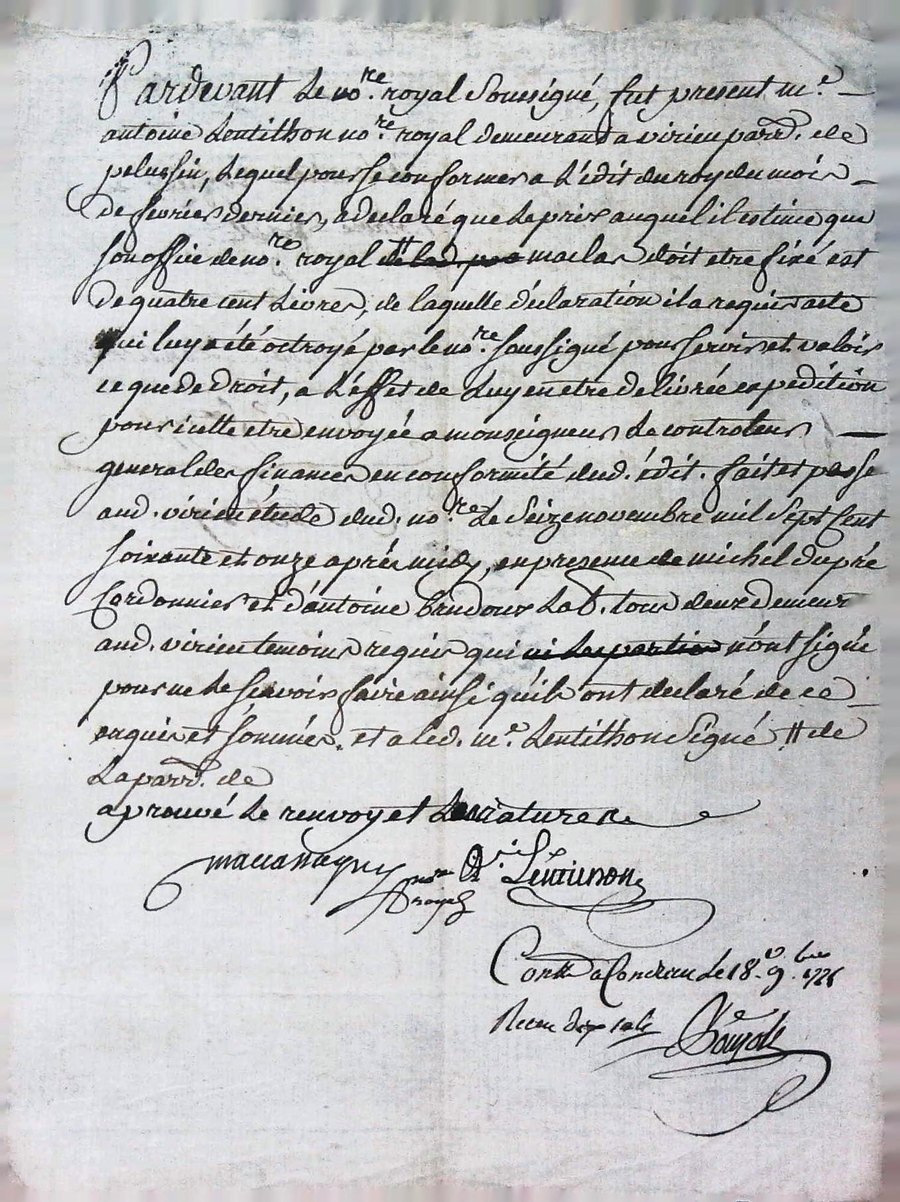 Pardevant Le no.re royal Soussigné, fut present m.e
antoine Lentilhon no.re royal demeurant a virieu parr.e de
pelussin, Lequel pour se conformer a L'édit du roy du mois
de fevrier dernier, a declaré que Le prix auquel il estime que
son office de no.re royal # de lad. par maclas doit etre fixé est
de quatre cent Livres, de laquelle déclaration il a requis acte
qui luy a été octroyé par le no.re soussigné pour servir et valoir
ce que de Droit, a L'effet de Luy en etre delivrée expédition
pour icelle etre envoyée a monseigneur Le controleur
general des finances en conformité dud. édit. fait et passé
aud. virieu étude dud. no.re Le Seize novembre mil Sept Cent
soixante et onze aprés midy, en presence de michel dupré
Cordonnier et d'antoine Lab. tous deux demeur
aud. virieu temoins requis qui ni Les parties n'ont signé
pour ne Le scavoir faire ainsi qu'ils ont declaré de ce
enquis et sommés. et a led. m.e Lentilhon Signé # de
La parr.e de
aprouvé Le renvoy et La rature
no.re A. Lentilhon
royal
Con.lé a Condrieu Le 18.e 9.bre 1771
Recu dix sols